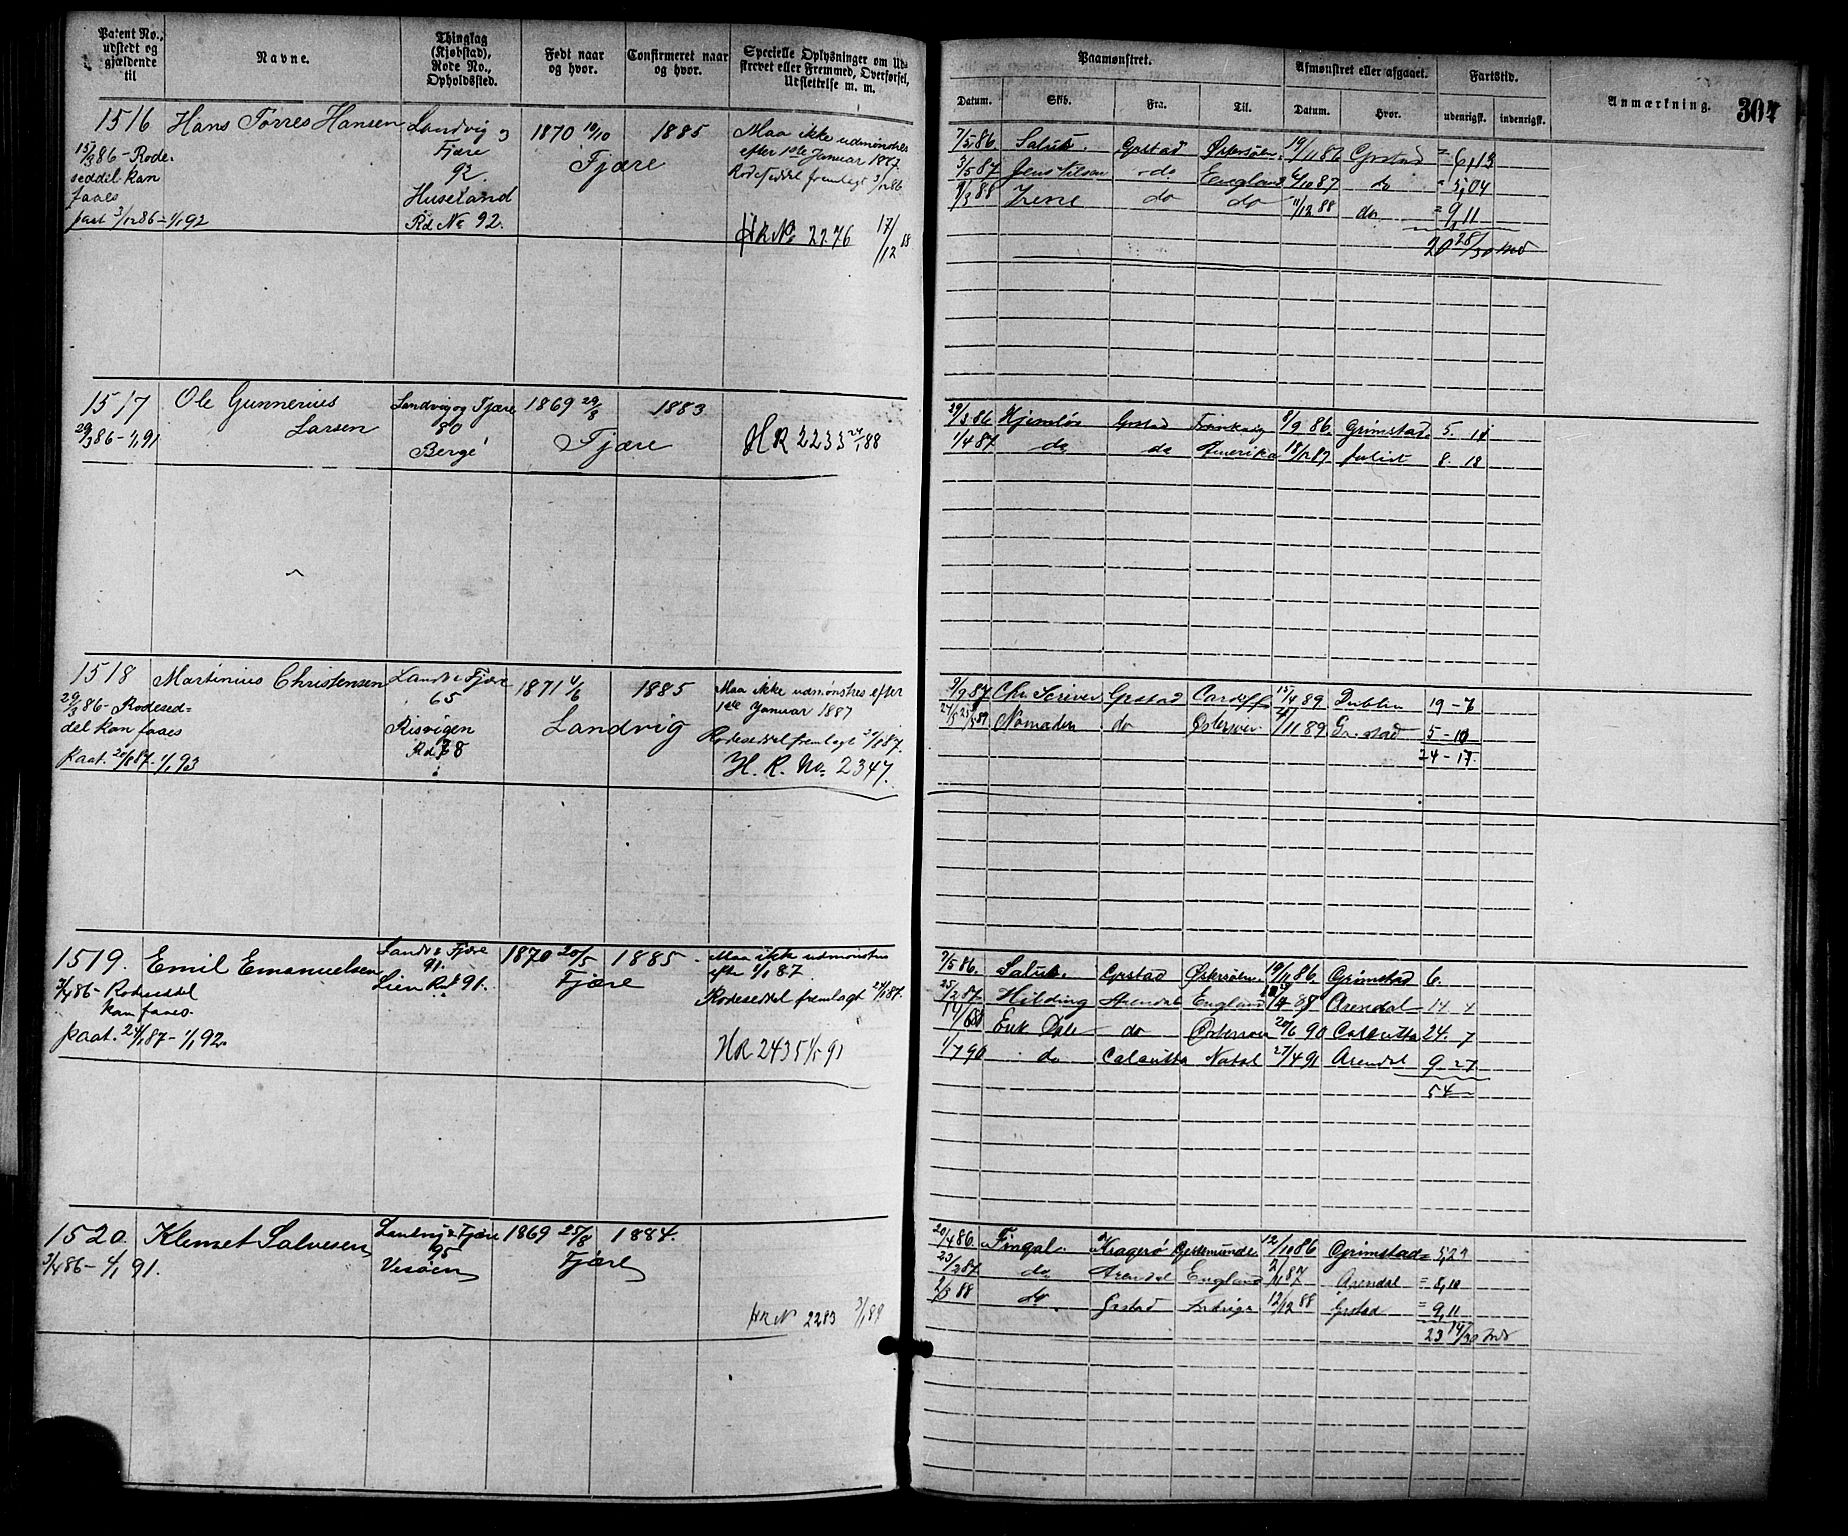 Patent No., udstedt og gjældende til
Navne.
Thinglag (Kjøbstad), Rode No., Opholdssted.
Født naar og hvor.
Confirmeret naar og hvor.
Specielle Oplysninger om Udskrevet eller Fremmed, Overførsel, Udslettelse m. m.
Paamønstret.
Afmønstret eller afgaaet.
Fartstid.
Anmærkning.
307
Datum.
Skib.
Fra.
Til.
Datum.
Hvor.
udenrigsk.
indenrigsk.
1516 Hans Torres Hansen
15/3 86 - Rode-
seddel kan
faaes
paat 3/12 86 - 1/1 92
Landvig og
Fjære
92.
Huseland
Rd No 92.
1870 19/10 1885
Fjære
Maa ikke udmønstres
efter 1ste Januar 1887
Rodeseddel fremlagt 3/12 86
HR No 2276 17/12 88
7/5 86. Salus. Grstad Østersøen 19/11 86 Grstad = 6,13
3/5 87 Jens Nilson do England 6/10 87 do = 5,04
1/3 88 Irene do do 11/12 88 do = 9,11
20 28/30 Md
1517 Ole Gunnerius
Larsen
29/3 86 - 1/1 91
Landvig og Fjære
80
Berge
1869 29/8 1883
Fjære
HR 2233 24/1 88
29/3 86 Hjemløs Grstad Frankrig 8/9 86. Grimstad 5. 11
1/4 87 do do Amerika 18/12 87 forlist 8. 18
1518 Martinius Christensen
29/3 86 - Rodesed=
del kan faaes
paat. 20/1 87 - 1/1 93
Landv & Fjære
65
Risvigen
Rd 78
1871 4/6 1885
Landvig
Maa ikke udmønstres efter
1ste Januar 1887
Rodeseddel fremlagt 20/1 87.
H. R. No. 2347.
9/2 87 Chr. Scriver Grstad Cardiff 15/4 89 Dublin 19-6
Nomaden do 11 89 Gr.stad 5-10
24-17
1519. Emil Emanuelsen
3/4 86 - Rodeseddel
kan faaes.
paat. 24/1 87 - 1/1 92
Landv & Fjære
91.
Lien Rd. 91.
1870 20/5 1885
Fjære
Maa ikke udmønstres
efter 1/1 87.
Rodeseddel fremlagt 24/1 87.
HR 2435 1/5 91
7/5 86. Salus. Grstad Østersøen 19/11 86. Grimstad 6.
25/2 87 Hilding Arendal England Arendal 14 4
Erik Dale do Østersøen 20/6 90 Calcutta 24. 7
1/7 90 do Calcutta Natal 27/4 91 Arendal 9 27
54
1520. Klemet Salvesen
3/4 86 - 1/1 91.
Landvig & Fjære
95
Vesøen
1869 25/8 1884.
Fjære
HR N 2283 3/1 89
20/4 86. Fingal. Kragerø Gestemunde 12/10 86 Grimstad = 5,21
23/2 87 do Arendal England 2/11 87 Arendal = 8,10
2/3 88 do Grstad 12/12 88 Grstad = 9,11
23 14/30 Md